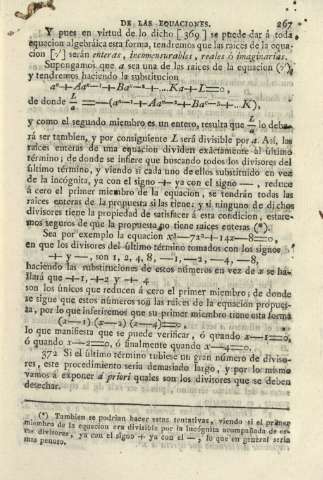 DE LAS EQUACIONES. 267
Y pues en virtud de lo dicho [369] se puede dar á toda
equacion algebráica esta forma, tendremos que las raices de la equa-
cion [γ] serán enteras, inconmensurables, reales ó imaginarias.
Supongamos que a sea una de las raices de la equacion (γ),
y tendremos haciendo la substitucion
aⁿ+Aaⁿ⁻¹+Baⁿ⁻²+...Ka+L=0,
de donde L/a =—(aⁿ⁻¹+Aaⁿ⁻²+Baⁿ⁻³+...K),
y como el segundo miembro es un entero, resulta que L/a lo debe-
rá ser tambien, y por consiguiente L será divisible por a. Así, las
raices enteras de una equacion dividen exâctamente al último
término; de donde se infiere que buscando todos los divisores del
último término, y viendo si cada uno de ellos substituido en vez
de la incógnita, ya con el signo + ya con el signo —, reduce
á cero el primer miembro de la equacion, se tendrán todas las
raices enteras de la propuesta si las tiene; y si ninguno de dichos
divisores tiene la propiedad de satisfacer á esta condicion, estare-
mos seguros de que la propuesta no tiene raices enteras (*).
Sea por exemplo la equacion x³—7x²+14x—8=0,
en que los divisores del último término tomados con los signos
+ y —, son 1, 2, 4, 8, —1, —2, —4, —8,
haciendo las substituciones de estos números en vez de x se ha-
llará que +1, +2 y +4
son los únicos que reducen á cero el primer miembro; de donde
se sigue que estos números son las raices de la equacion propues-
ta, por lo que inferiremos que su primer miembro tiene esta forma
(x—1) (x—2) (x—4)=0,
lo que manifiesta que se puede verificar, ó quando x—1=0,
ó quando x—2=0, ó finalmente quando x—4=0.
372 Si el último término tubiese un gran número de diviso-
res, este procedimiento seria demasiado largo, y por lo mismo
vamos á exponer á priori quales son los divisores que se deben
desechar.
(*) Tambien se podrian hacer estas tentativas, viendo si el primer
miembro de la equacion era divisible por la incógnita acompañada de es-
tos divisores, ya con el signo + ya con el —, lo que en general seria
mas penoso.